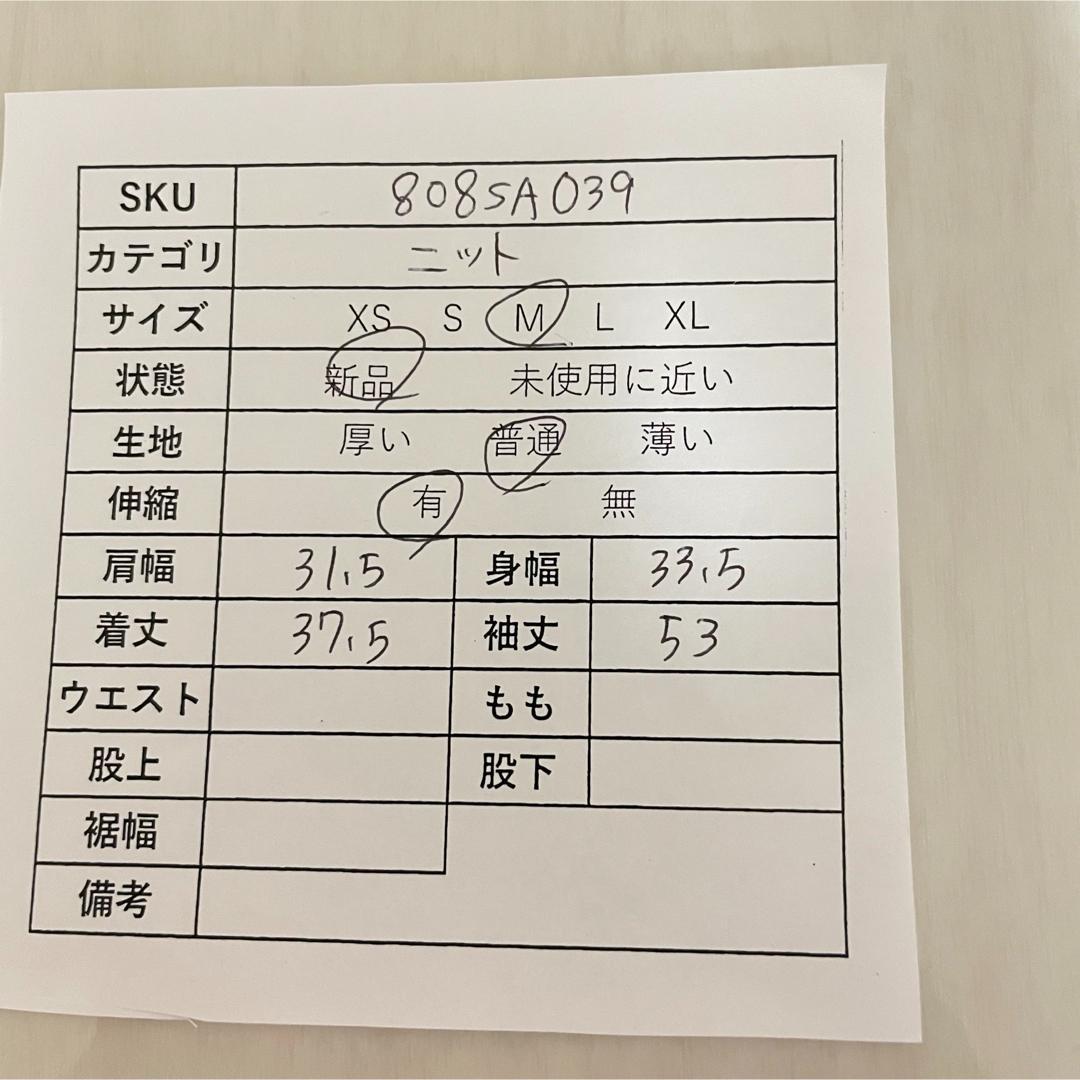 SKU 808SA039
カテゴリ ニット
サイズ XS S M L XL
状態 新品 未使用に近い
生地 厚い 普通 薄い
伸縮 有 無
肩幅 31.5 身幅 33.5
着丈 37.5 袖丈 53
ウエスト もも
股上 股下
裾幅
備考